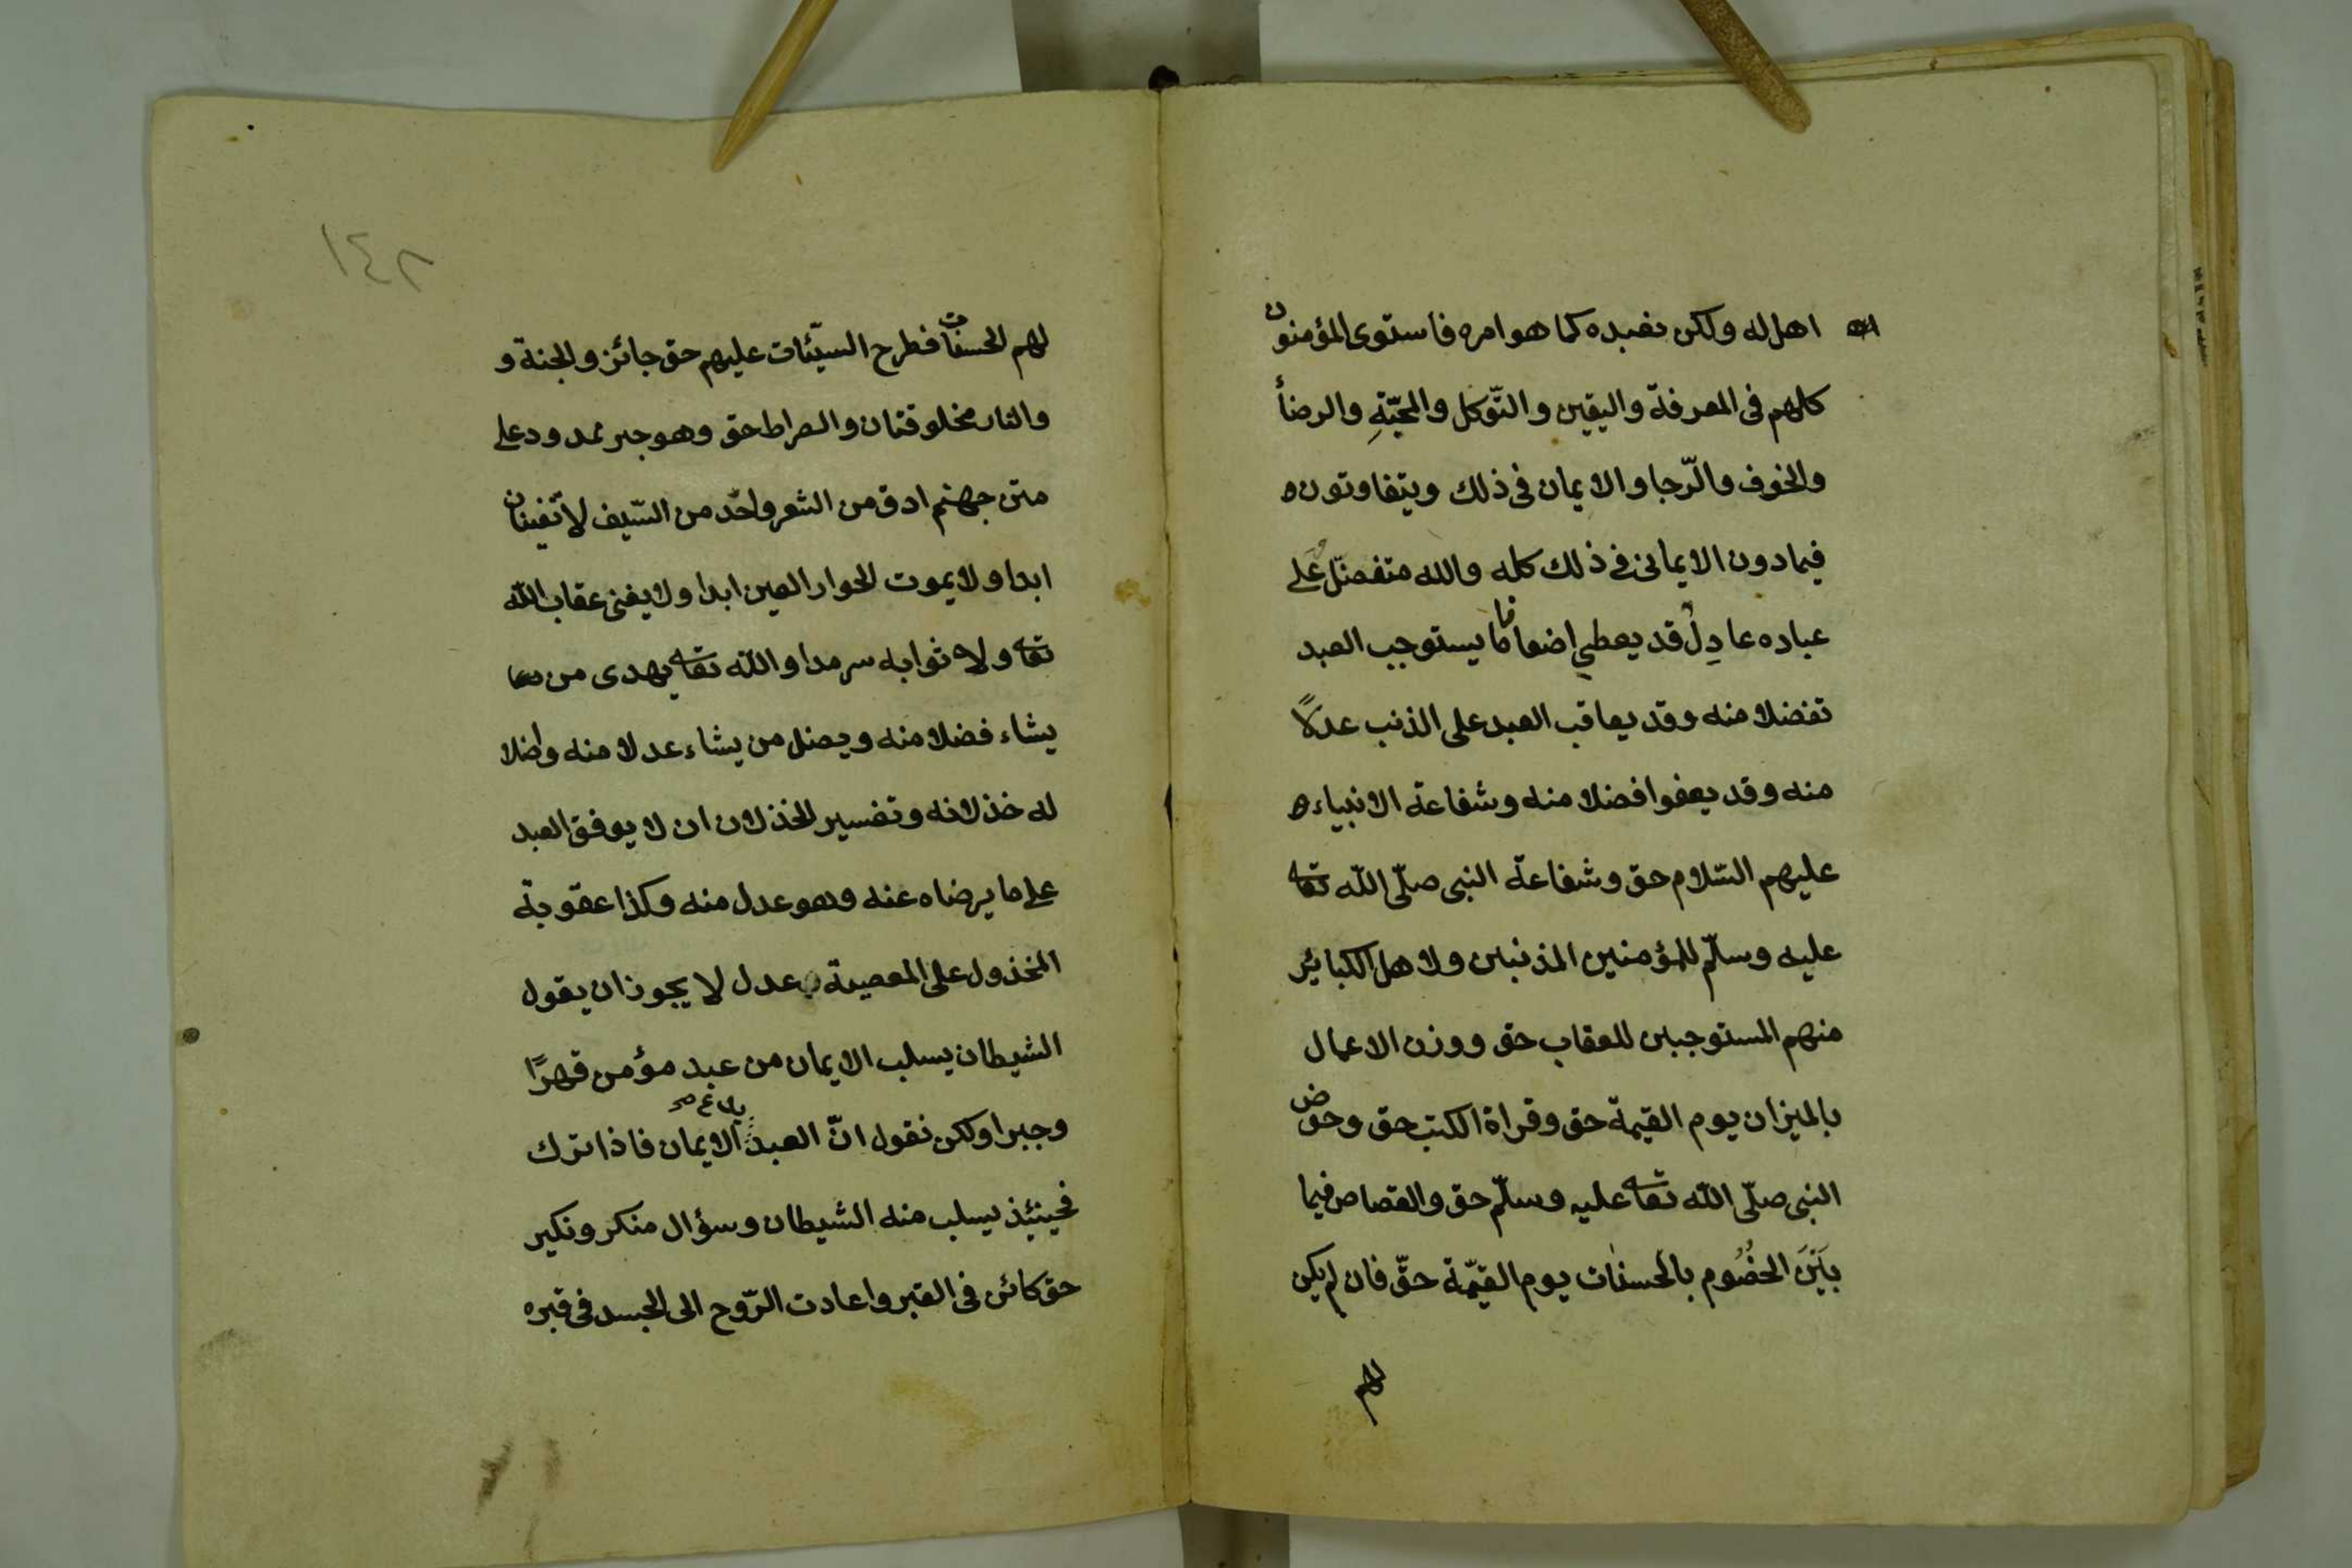 اهل له ولكن نعبده كما هو امره فاستوى المؤمنون
كلهم فى المعرفة واليقين والتّوكل والمحبّةِ والرضأ
والخوف والرّجا والايمان فى ذلك ويتفاوتون
فيما دون الايمانى فى ذلك كله والله متفضّل على
عباده عادِل قد يعطي اضعافا ما يستوجب العبد
تفضلا منه وقد يعاقب العبد على الذنب عدلاً
منه وقد يعفوا فضلا منه وشفاعة الانبياء
عليهم السّلام حق وشفاعة النبى صلّى الله تعا
عليه وسلّم للمؤمنين المذنبين ولاهل الكبائر
منهم المستوجبين للعقاب حق ووزن الاعمال
بالميزان يوم القيمة حق وقراة الكتب حق وحوض
النبى صلّى الله تعا عليه وسلّم حق والقصاص فيما
بَيْنَ الخصُوم بالحسنات يوم القيمّة حقّ فان لم يكن
لهم
١٤٨
لهم الحسنات فطرح السيّئات عليهم حق جائز والجنة و
والنار مخلوقتان والصراط حق وهو جسر ممدود على
متن جهنم ادق من الشعر واحّد من السّيف لا تفينان
ابدا ولا يموت الحوار العين ابدا ولا يفنى عقاب الله
تعا ولا ثوابه سرمدا والله تعا يهدى من
يشاء فضلا منه ويضل من يشاء عدلا منه واضلا
له خذلانه وتفسير الخذلان ان لا يوفق العبد
على ما يرضاه عنه وهو عدل منه وكذا عقوبة
المخذول على المعصية عدل لا يجوز ان يقول
الشيطان يسلب الايمان من عبد مؤمن قهرًا
وجبرا ولكن نقول انّ العبد يدع الايمان فاذا ترك
فحينئِذ يسلب منه الشيطان وسؤال منكر ونكير
حق كائن فى القبر واعادت الرّوح الى الجسد فى قبره